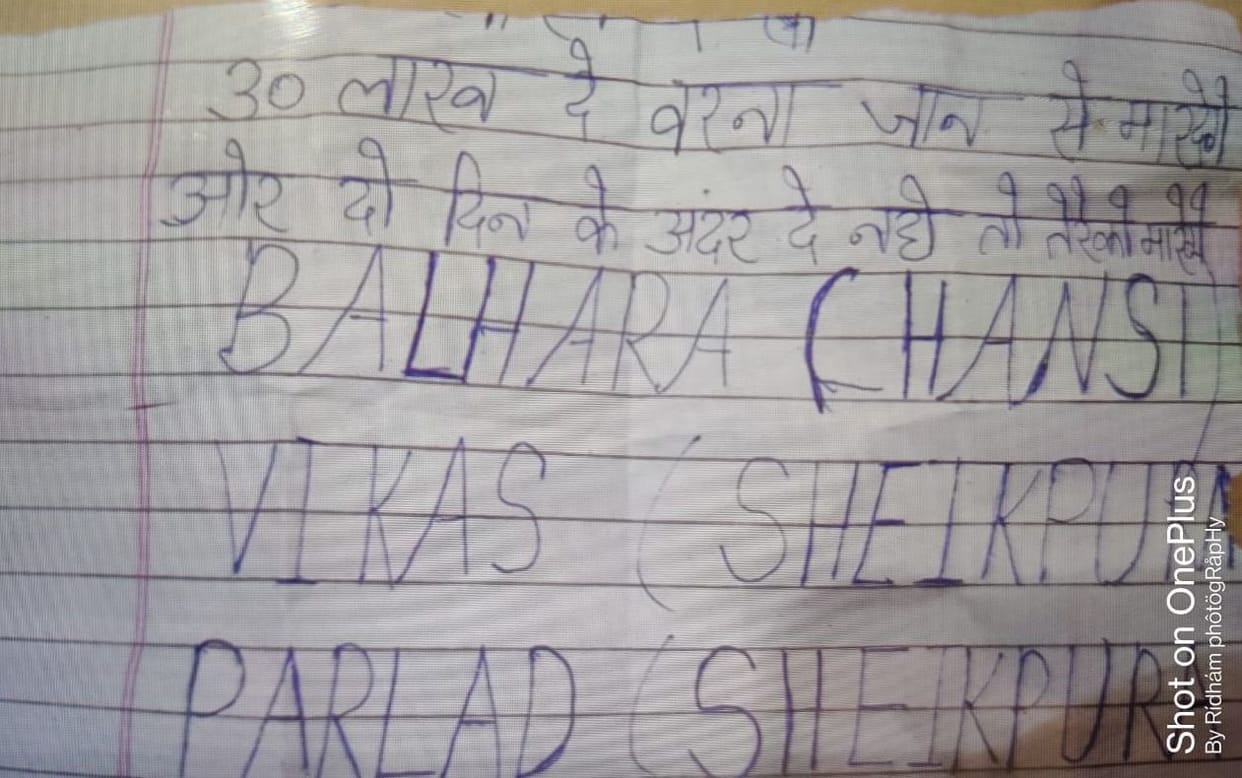 30 लाख दे वरना जान से मारेगे
और दो दिन के अंदर दे नही तो तेरेको मारेगे
BALHARA (HANSI)
VIKAS (SHEIKPUR
PARLAD (SHEIKPURA
Shot on OnePlus
By Rídhám phôtögRåpHy